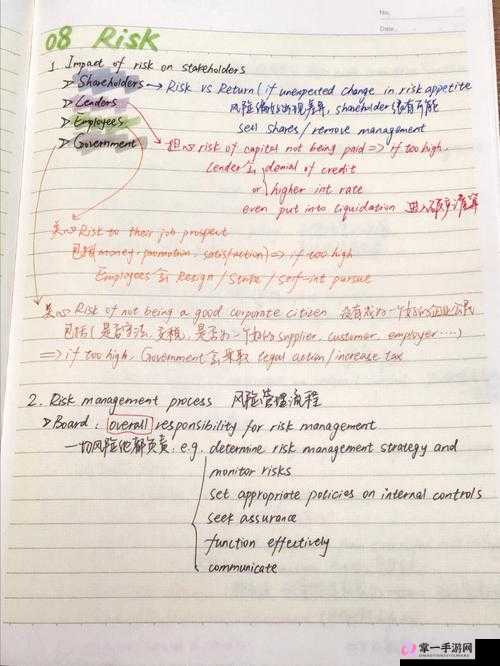 No.
Date.
08 Risk
1 Impact of risk on stakeholders
➢ Shareholders → Risk vs Return (if unexpected change in risk appetite
风险偏好出现差异, shareholder 很有可能
sell shares / remove management
➢ Lenders
➢ Employees
➢ Government
担心 risk of capital not being paid => if too high,
Lender会 denial of credit
or higher int rate
even put into liquidation 进入破产清算
关心 Risk to their job prospect
包括(money, promotion, satisfaction) => if too high
Employees 会 Resign / Strike / self-int pursue
关心 Risk of not being a good corporate citizen 没有成为一个好的企业公民
包括(是否守法, 交税, 是否为一个好的 supplier, customer, employer.....)
=> if too high, Government会采取 legal action / increase tax
2. Risk management process 风险管理流程
➢ Board : overall responsibility for risk management
一切风险他都负责: e.g. determine risk management strategy and
monitor risks
set appropriate policies on internal controls
seek assurance
function effectively
communicate
掌一手游网